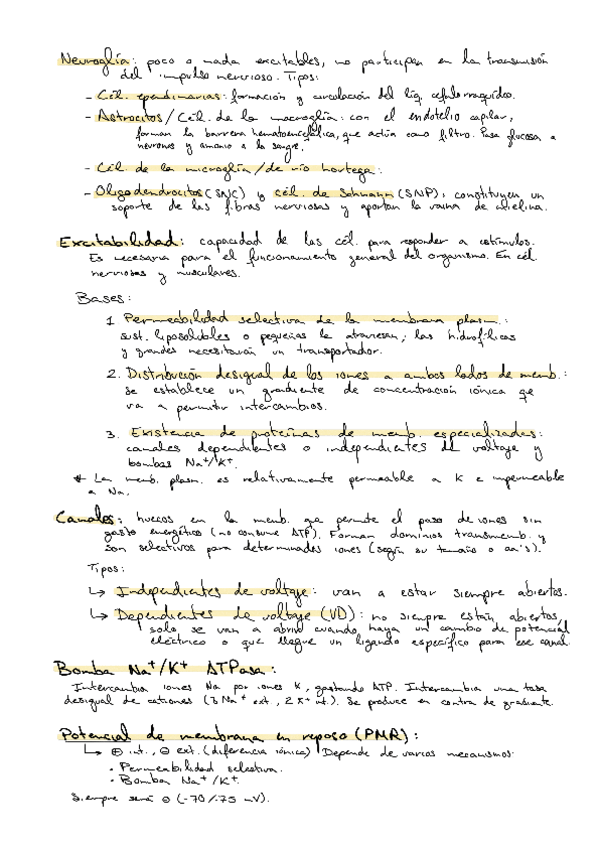 Neuroglía: poco o nada excitables, no participan en la transmisión
del impulso nervioso. Tipos:
- Cél. ependimarias: formación y circulación del líq. cefalorraquídeo.
- Astrocitos/Cél. de la macroglía: con el endotelio capilar,
forman la barrera hematoencefálica, que actúa como filtro. Pasa glucosa a
neuronas y amonio a la sangre.
- Cél. de la microglía/de río hortega.
- Oligodendrocitos (SNC) y cél. de Schwann (SNP), constituyen un
soporte de las fibras nerviosas y aportan la vaina de mielina.
Excitabilidad: capacidad de las cél. para responder a estímulos.
Es necesaria para el funcionamiento general del organismo. En cél.
nerviosas y musculares.
Bases:
1. Permeabilidad selectiva de la membrana plasm.:
sust. liposolubles o pequeñas la atraviesan; las hidrofílicas
y grandes necesitarán un transportador.
2. Distribución desigual de los iones a ambos lados de memb.:
se establece un gradiente de concentración iónica qe
va a permitir intercambios.
3. Existencia de proteínas de memb. especializadas:
canales dependientes o independientes de voltaje y
bombas Na+/K+.
* La memb. plasm. es relativamente permeable a K e impermeable
a Na.
Canales: huecos en la memb. que permite el paso de iones sin
gasto energético (no consume ATP). Forman dominios transmemb. y
son selectivos para determinados iones (según su tamaño o aa's).
Tipos:
↳ Independientes de voltaje: van a estar siempre abiertos.
↳ Dependientes de voltaje (VD): no siempre están abiertos,
solo se van a abrir cuando haya un cambio de potencial
eléctrico o que llegue un ligando específico para ese canal.
Bomba Na+/K+ ATPasa:
Intercambia iones Na por iones K, gastando ATP. Intercambia una tasa
desigual de cationes (3 Na+ ext., 2 K+ int.). Se produce en contra de gradiente.
Potencial de membrana en reposo (PMR):
↳ ⊕ int., ⊖ ext. (diferencia iónica) Depende de varios mecanismos:
• Permeabilidad selectiva.
• Bomba Na+/K+.
Siempre será ⊖ (-70/-75 mV).